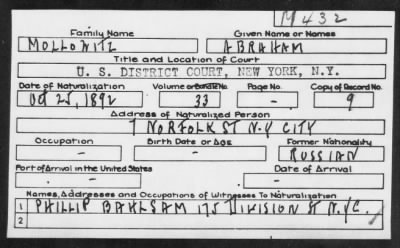 M432
Family Name Given Name or Names
MOLLOWITZ ABRAHAM
Title and Location of Court
U. S. DISTRICT COURT, NEW YORK, N.Y.
Date of Naturalization Volume or Bundle No. Page No. Copy of Record No.
Oct 25, 1892 33 - 9
Address of Naturalized Person
7 NORFOLK ST N.Y CITY
Occupation Birth Date or Age Former Nationality
- - RUSSIAN
Port of Arrival in the United States Date of Arrival
- -
Names, Addresses and Occupations of Witnesses To Naturalization
1 PHILLIP BAHLSAM 175 DIVISION ST N.Y.C.
2